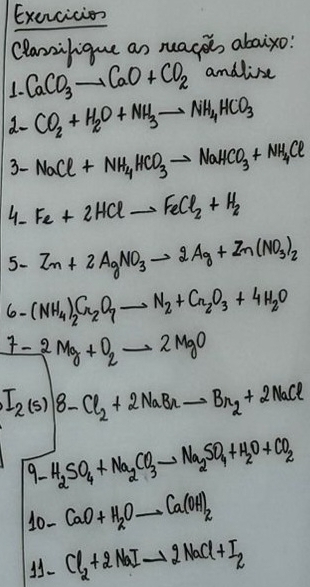 Exercícios
Classifique as reações abaixo:
1- CaCO₃ → CaO + CO₂ análise
2- CO₂ + H₂O + NH₃ → NH₄HCO₃
3- NaCl + NH₄HCO₃ → NaHCO₃ + NH₄Cl
4- Fe + 2HCl → FeCl₂ + H₂
5- Zn + 2AgNO₃ → 2Ag + Zn(NO₃)₂
6- (NH₄)₂Cr₂O₇ → N₂ + Cr₂O₃ + 4H₂O
7- 2Mg + O₂ → 2MgO
I₂(s)
8- Cl₂ + 2NaBr → Br₂ + 2NaCl
9- H₂SO₄ + Na₂CO₃ → Na₂SO₄ + H₂O + CO₂
10- CaO + H₂O → Ca(OH)₂
11- Cl₂ + 2NaI → 2NaCl + I₂